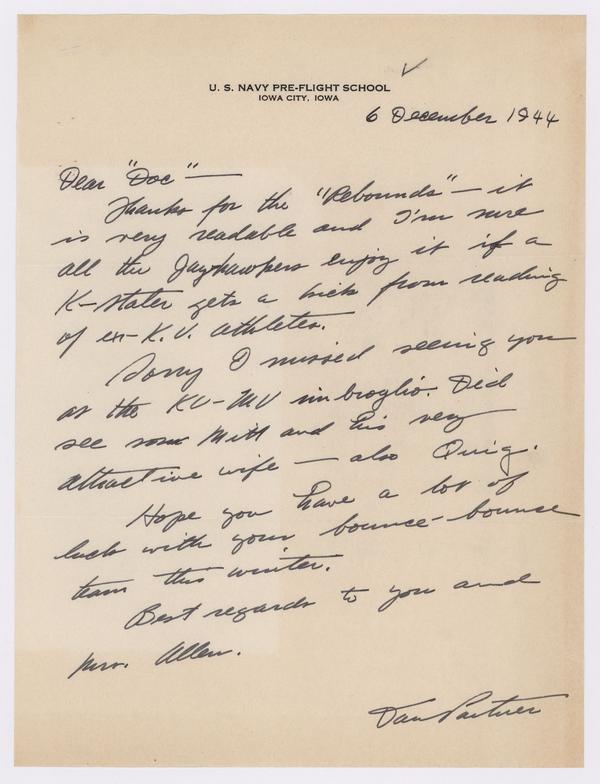 U. S. NAVY PRE-FLIGHT SCHOOL
IOWA CITY, IOWA
6 December 1944
Dear "Doc" —
Thanks for the "Rebounds" — it
is very readable and I'm sure
all the Jayhawkers enjoy it if a
K-Stater gets a kick from reading
of ex-K.U. athletes.
Sorry I missed seeing you
at the KU-MU imbroglio. Did
see son Mitt and his very
attractive wife — also Quig.
Hope you have a lot of
luck with your bounce-bounce
team this winter.
Best regards to you and
Mrs. Allen.
Dan Partner